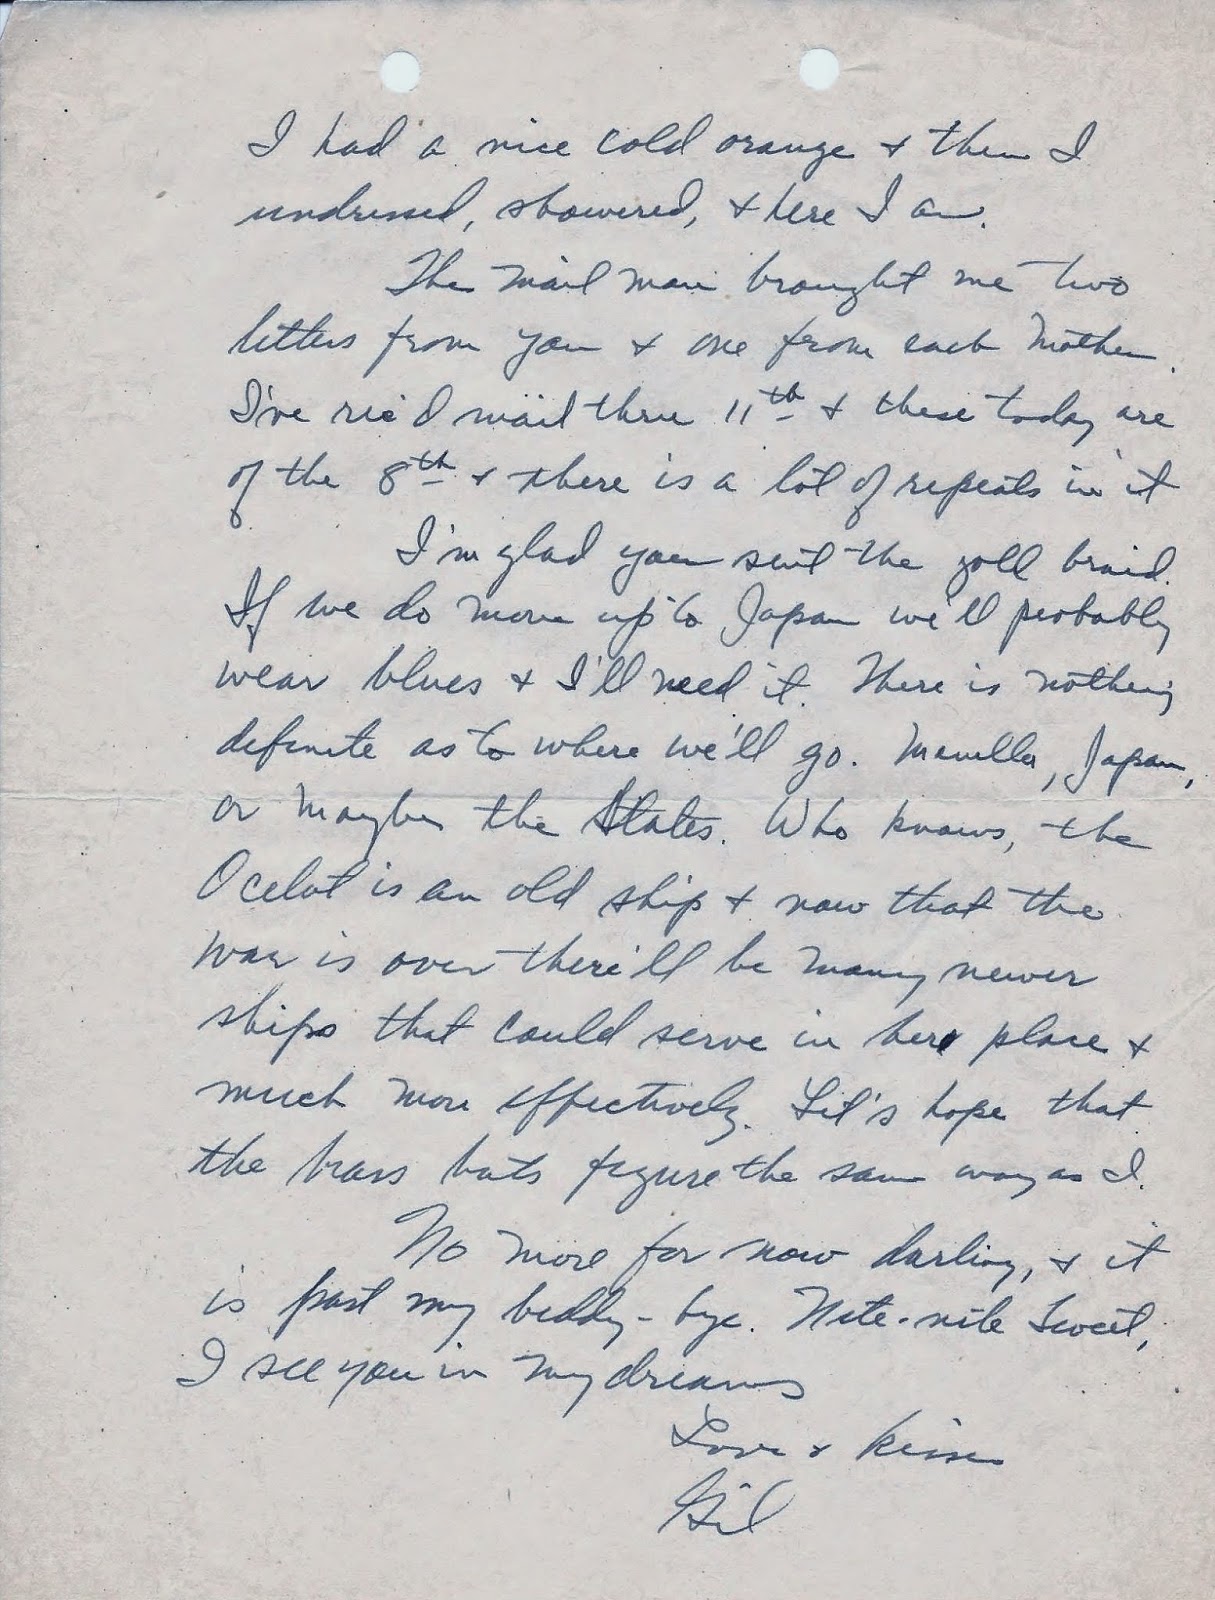 I had a nice cold orange & then I
undressed, showered, & here I am.
The mail man brought me two
letters from you & one from each Mother.
I've rec'd mail thru 11th & these today are
of the 8th & there is a lot of repeats in it
I'm glad you sent the goll braid.
If we do move up to Japan we'll probably
wear blues & I'll need it. There is nothing
definite as to where we'll go. Manilla, Japan,
or maybe the States. Who knows, the
Ocelot is an old ship & now that the
war is over there'll be many newer
ships that could serve in her place &
much more effectively. Let's hope that
the brass hats figure the same way as I.
No more for now darling, & it
is past my beddy-bye. Nite-nite Sweet,
I see you in my dreams
Love & kisses
Gil